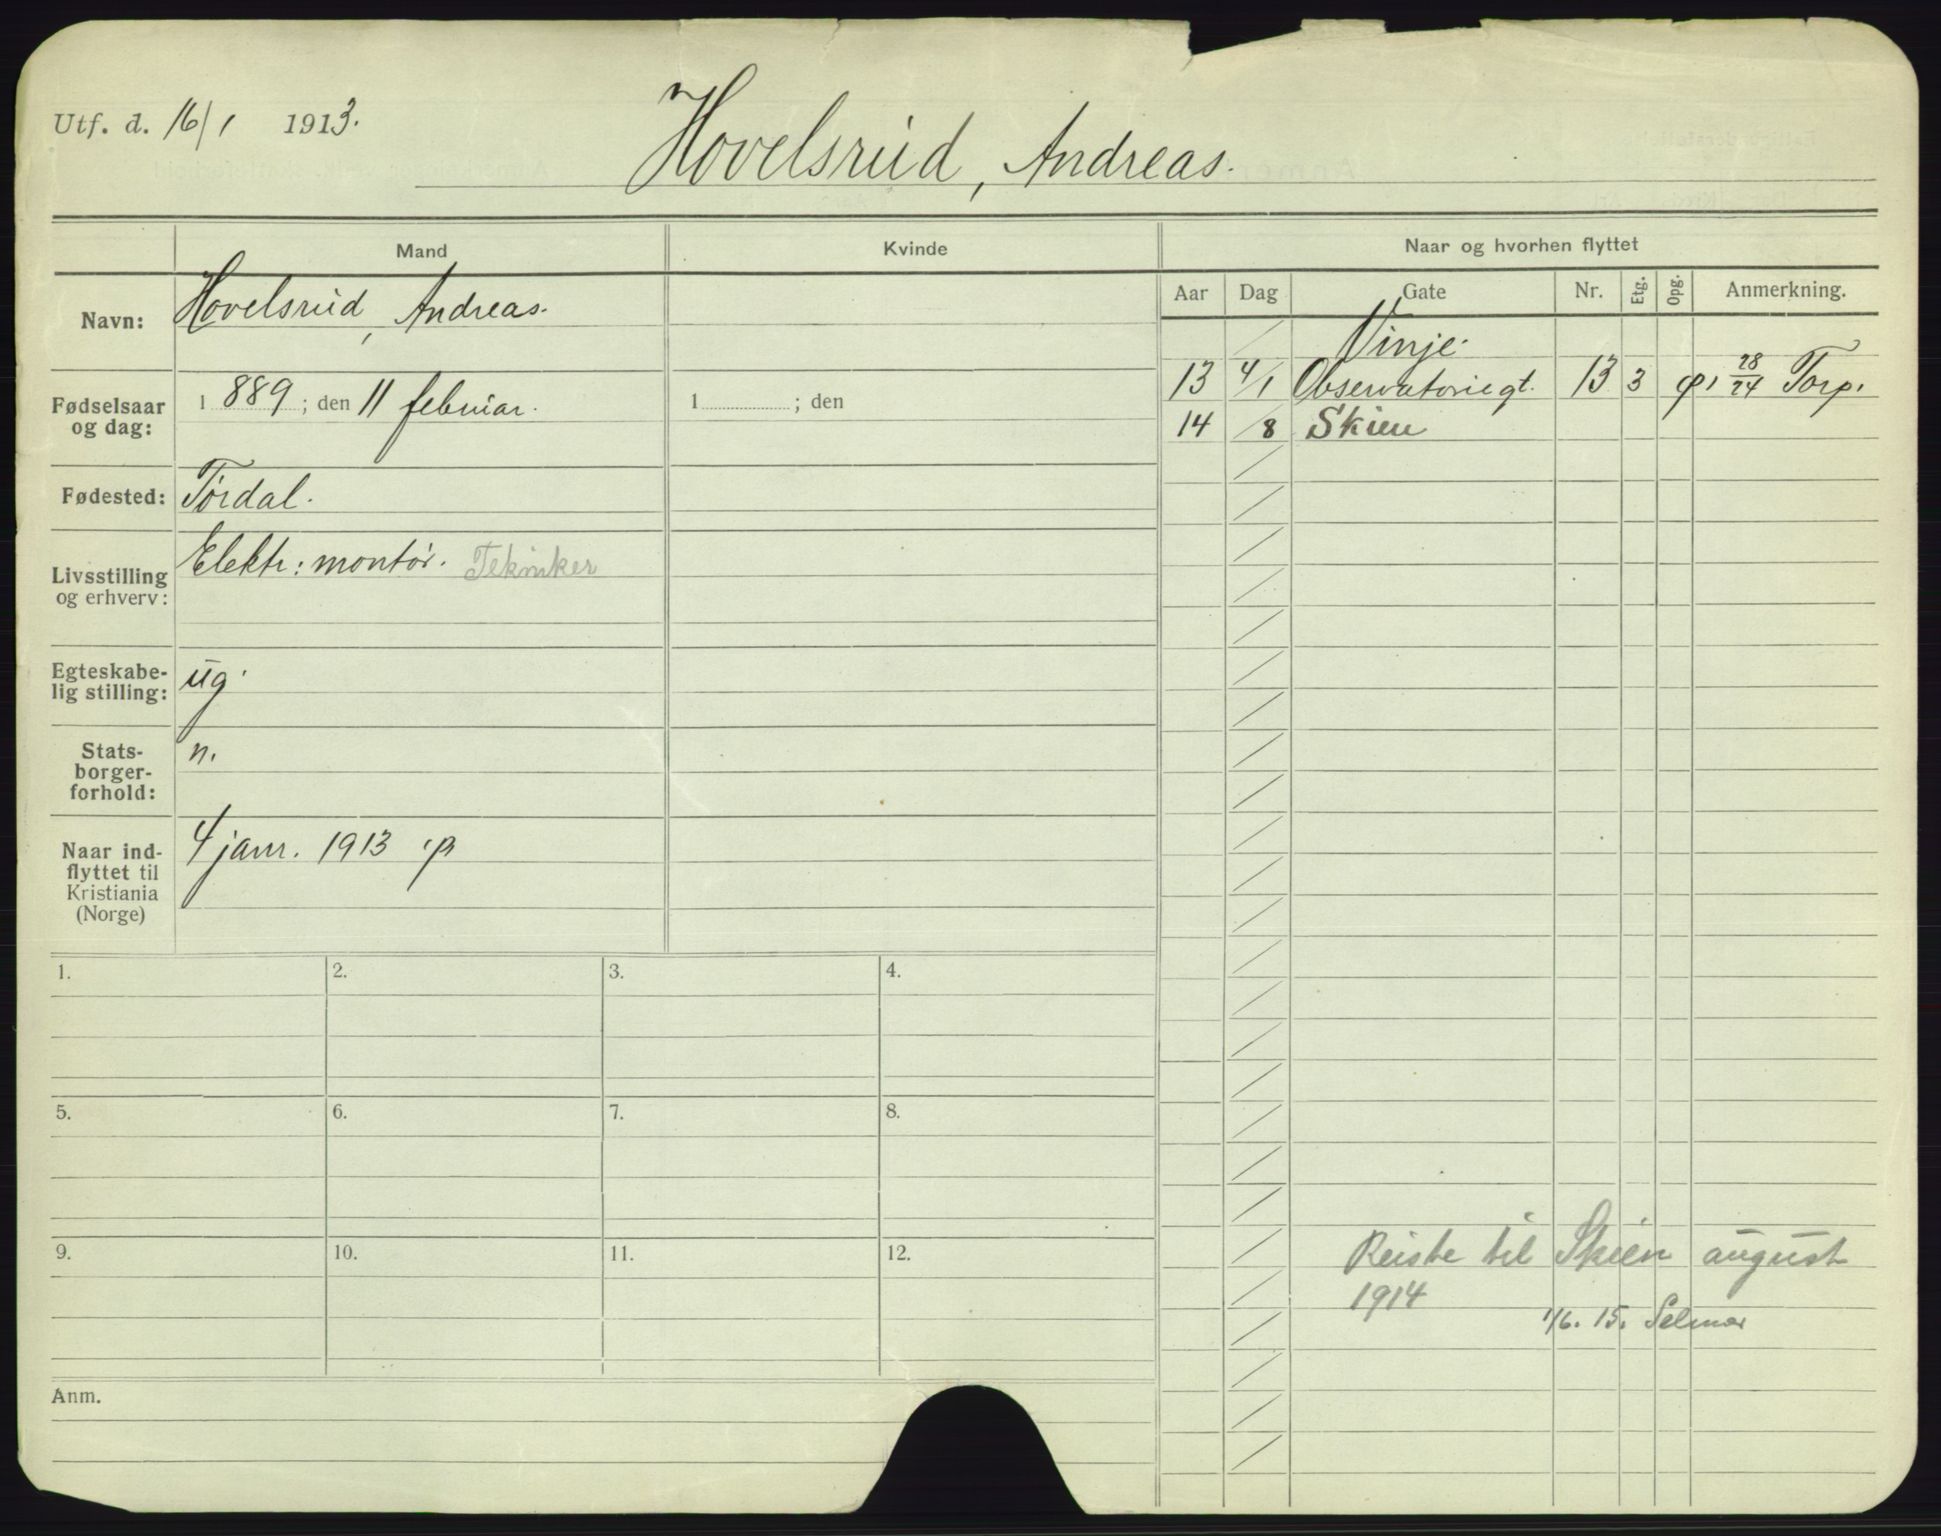 Utf. d. 16/1 1913.
Hovelsrud, Andreas.
Mand
Kvinde
Naar og hvorhen flyttet
Navn:
Hovelsrud, Andreas.
Fødselsaar og dag:
1889; den 11 februar.
1 ; den
Fødested:
Tørdal.
Livsstilling og erhverv:
Elektr: montør. Tekniker
Egteskabelig stilling:
ug.
Statsborgerforhold:
n.
Naar indflyttet til Kristiania (Norge)
4 janr. 1913
Aar Dag Gate Nr. Etg. Opg. Anmerkning.
Vinje.
13 4/1 Observatoriegt. 13 3 28/24 Torp.
14 /8 Skien
Reiste til Skien august
1914
1/6. 15. Selmer
1.
2.
3.
4.
5.
6.
7.
8.
9.
10.
11.
12.
Anm.